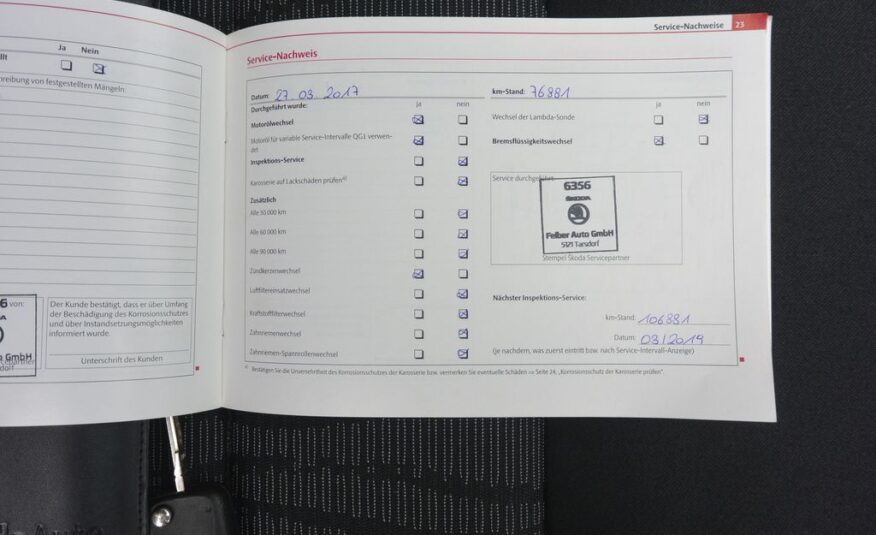 Ja Nein
llt
hreibung von festgestellten Mängeln
6 von:
GmbH
Der Kunde bestätigt, dass er über Umfang
der Beschädigung des Korrosionsschutzes
und über Instandsetzungsmöglichkeiten
informiert wurde.
Unterschrift des Kunden
Service-Nachweise 23
Service-Nachweis
Datum: 27.03.2017
Durchgeführt wurde: ja nein
Motorölwechsel
Motoröl für variable Service-Intervalle QG1 verwen-
det
Inspektions-Service
Karosserie auf Lackschäden prüfen a)
Zusätzlich
Alle 30 000 km
Alle 60 000 km
Alle 90 000 km
Zündkerzenwechsel
Luftfiltereinsatzwechsel
Kraftstofffilterwechsel
Zahnriemenwechsel
Zahnriemen-Spannrollenwechsel
km-Stand: 76881
ja nein
Wechsel der Lambda-Sonde
Bremsflüssigkeitswechsel
Service durchgeführt:
6356
ŠKODA
Felber Auto GmbH
5121 Tarsdorf
Stempel Škoda Servicepartner
Nächster Inspektions-Service:
km-Stand: 106881
Datum: 03/2019
(je nachdem, was zuerst eintritt bzw. nach Service-Intervall-Anzeige)
a) Bestätigen Sie die Unversehrtheit des Korrosionsschutzes der Karosserie bzw. vermerken Sie eventuelle Schäden ⇒ Seite 24, „Korrosionsschutz der Karosserie prüfen".